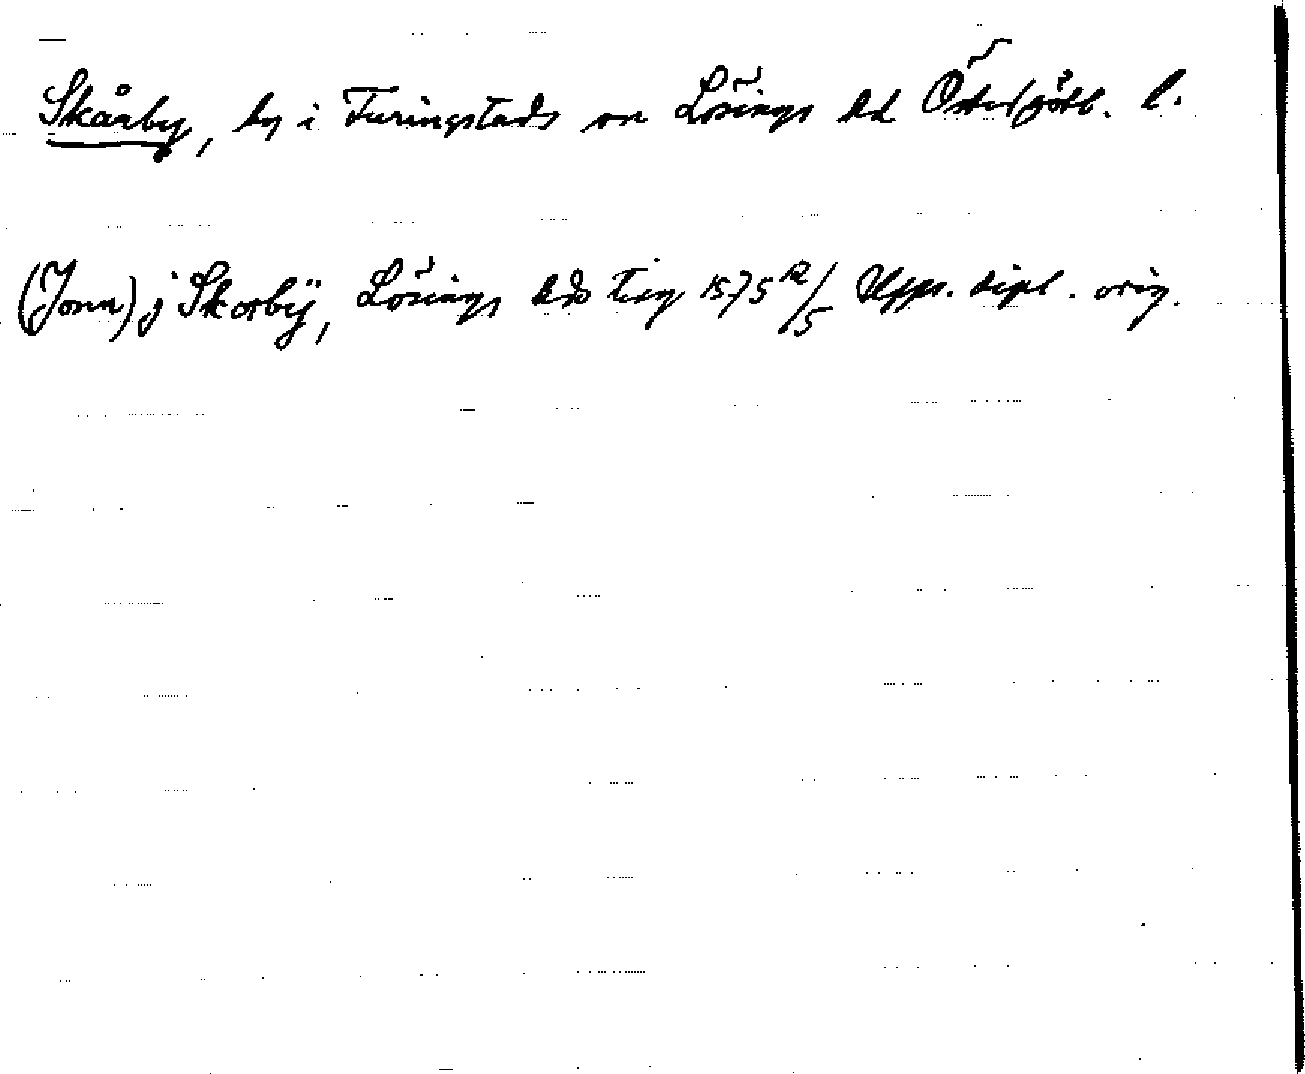 Skårby, by i Furingstads sn Lösings hd Östergötl. l.
(Jonn) j Skorbÿ, Lösings hds ting 1575 12/5 Upps. dipl. orig.